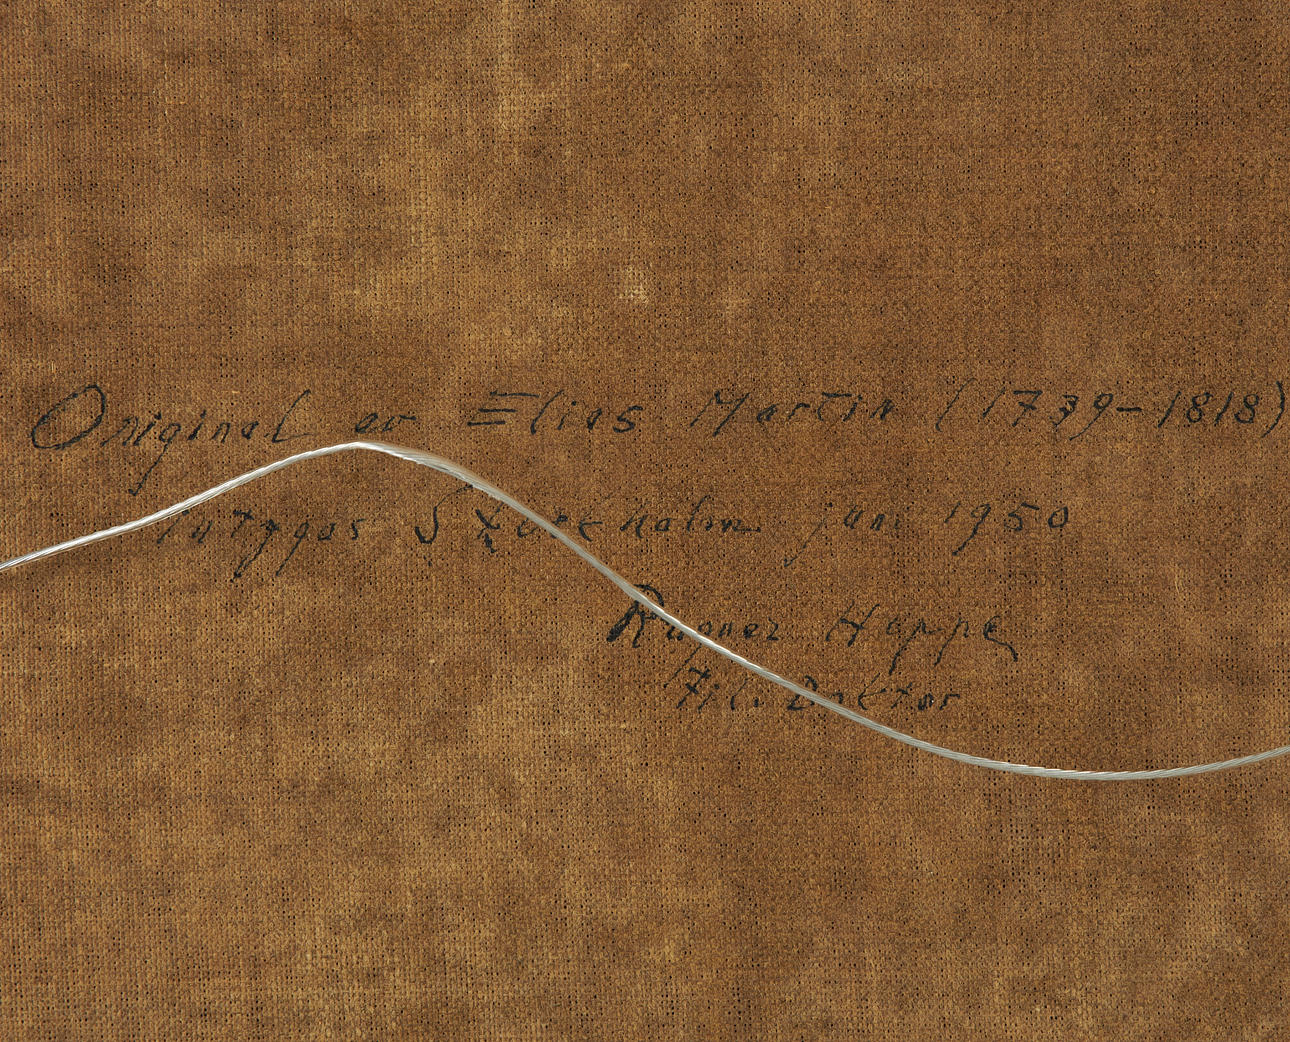 Original av Elias Martin (1739-1818)
intygas Stockholm juni 1950
Ragnar Hoppe
Fil. Doktor